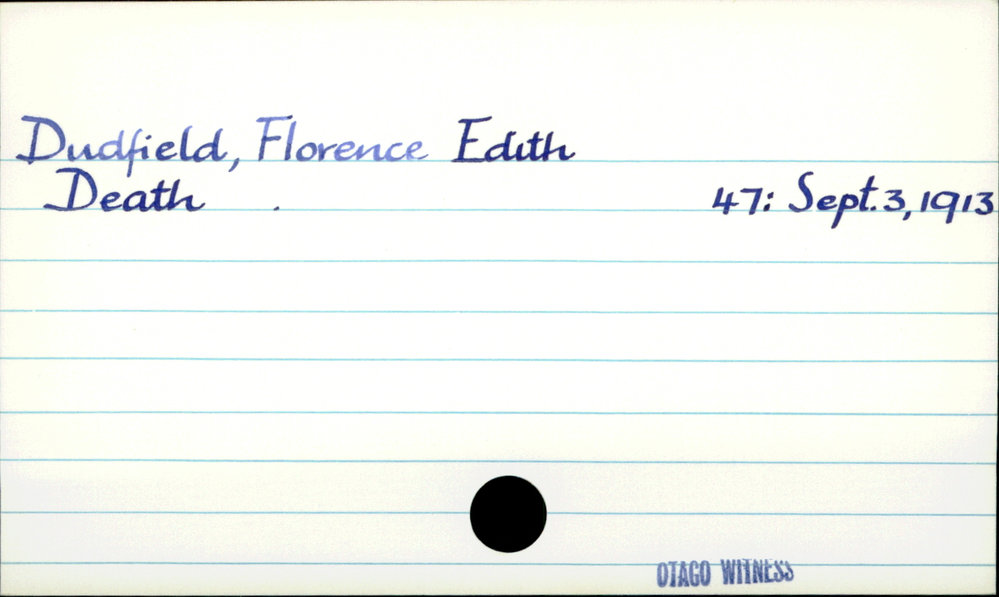 Dudfield, Florence Edith
Death . 47: Sept. 3, 1913
OTAGO WITNESS